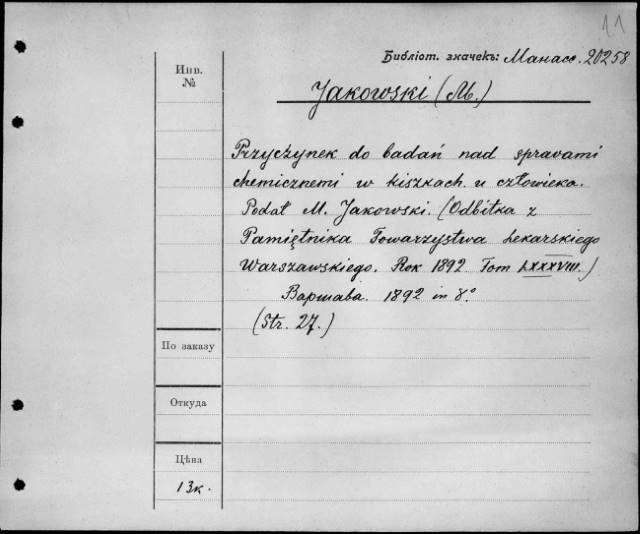 11
Библіот. значекъ: Манасс. 20258
Инв.
№
Jakowski (M.)
Przyczynek do badań nad sprawami
chemicznemi w kiszkach u człowieka.
Podał M. Jakowski. (Odbitka z
Pamiętnika Towarzystwa Lekarskiego
Warszawskiego. Rok 1892 Tom LXXXVIII.)
Варшава. 1892 in 8.°
(Str. 27.)
По заказу
Откуда
Цѣна
13к.